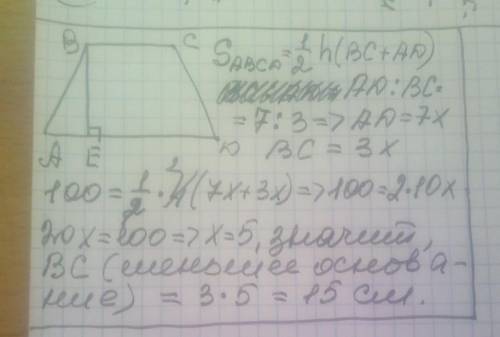 B C
A E D
S_ABCD = 1/2 h(BC+AD)
AD:BC=
=7:3=>AD=7x
BC = 3x
100=1/2·4(7x+3x)=>100=2·10x
20x=100=>x=5, значит,
BC (меньшее основа-
ние) = 3·5 = 15 см.